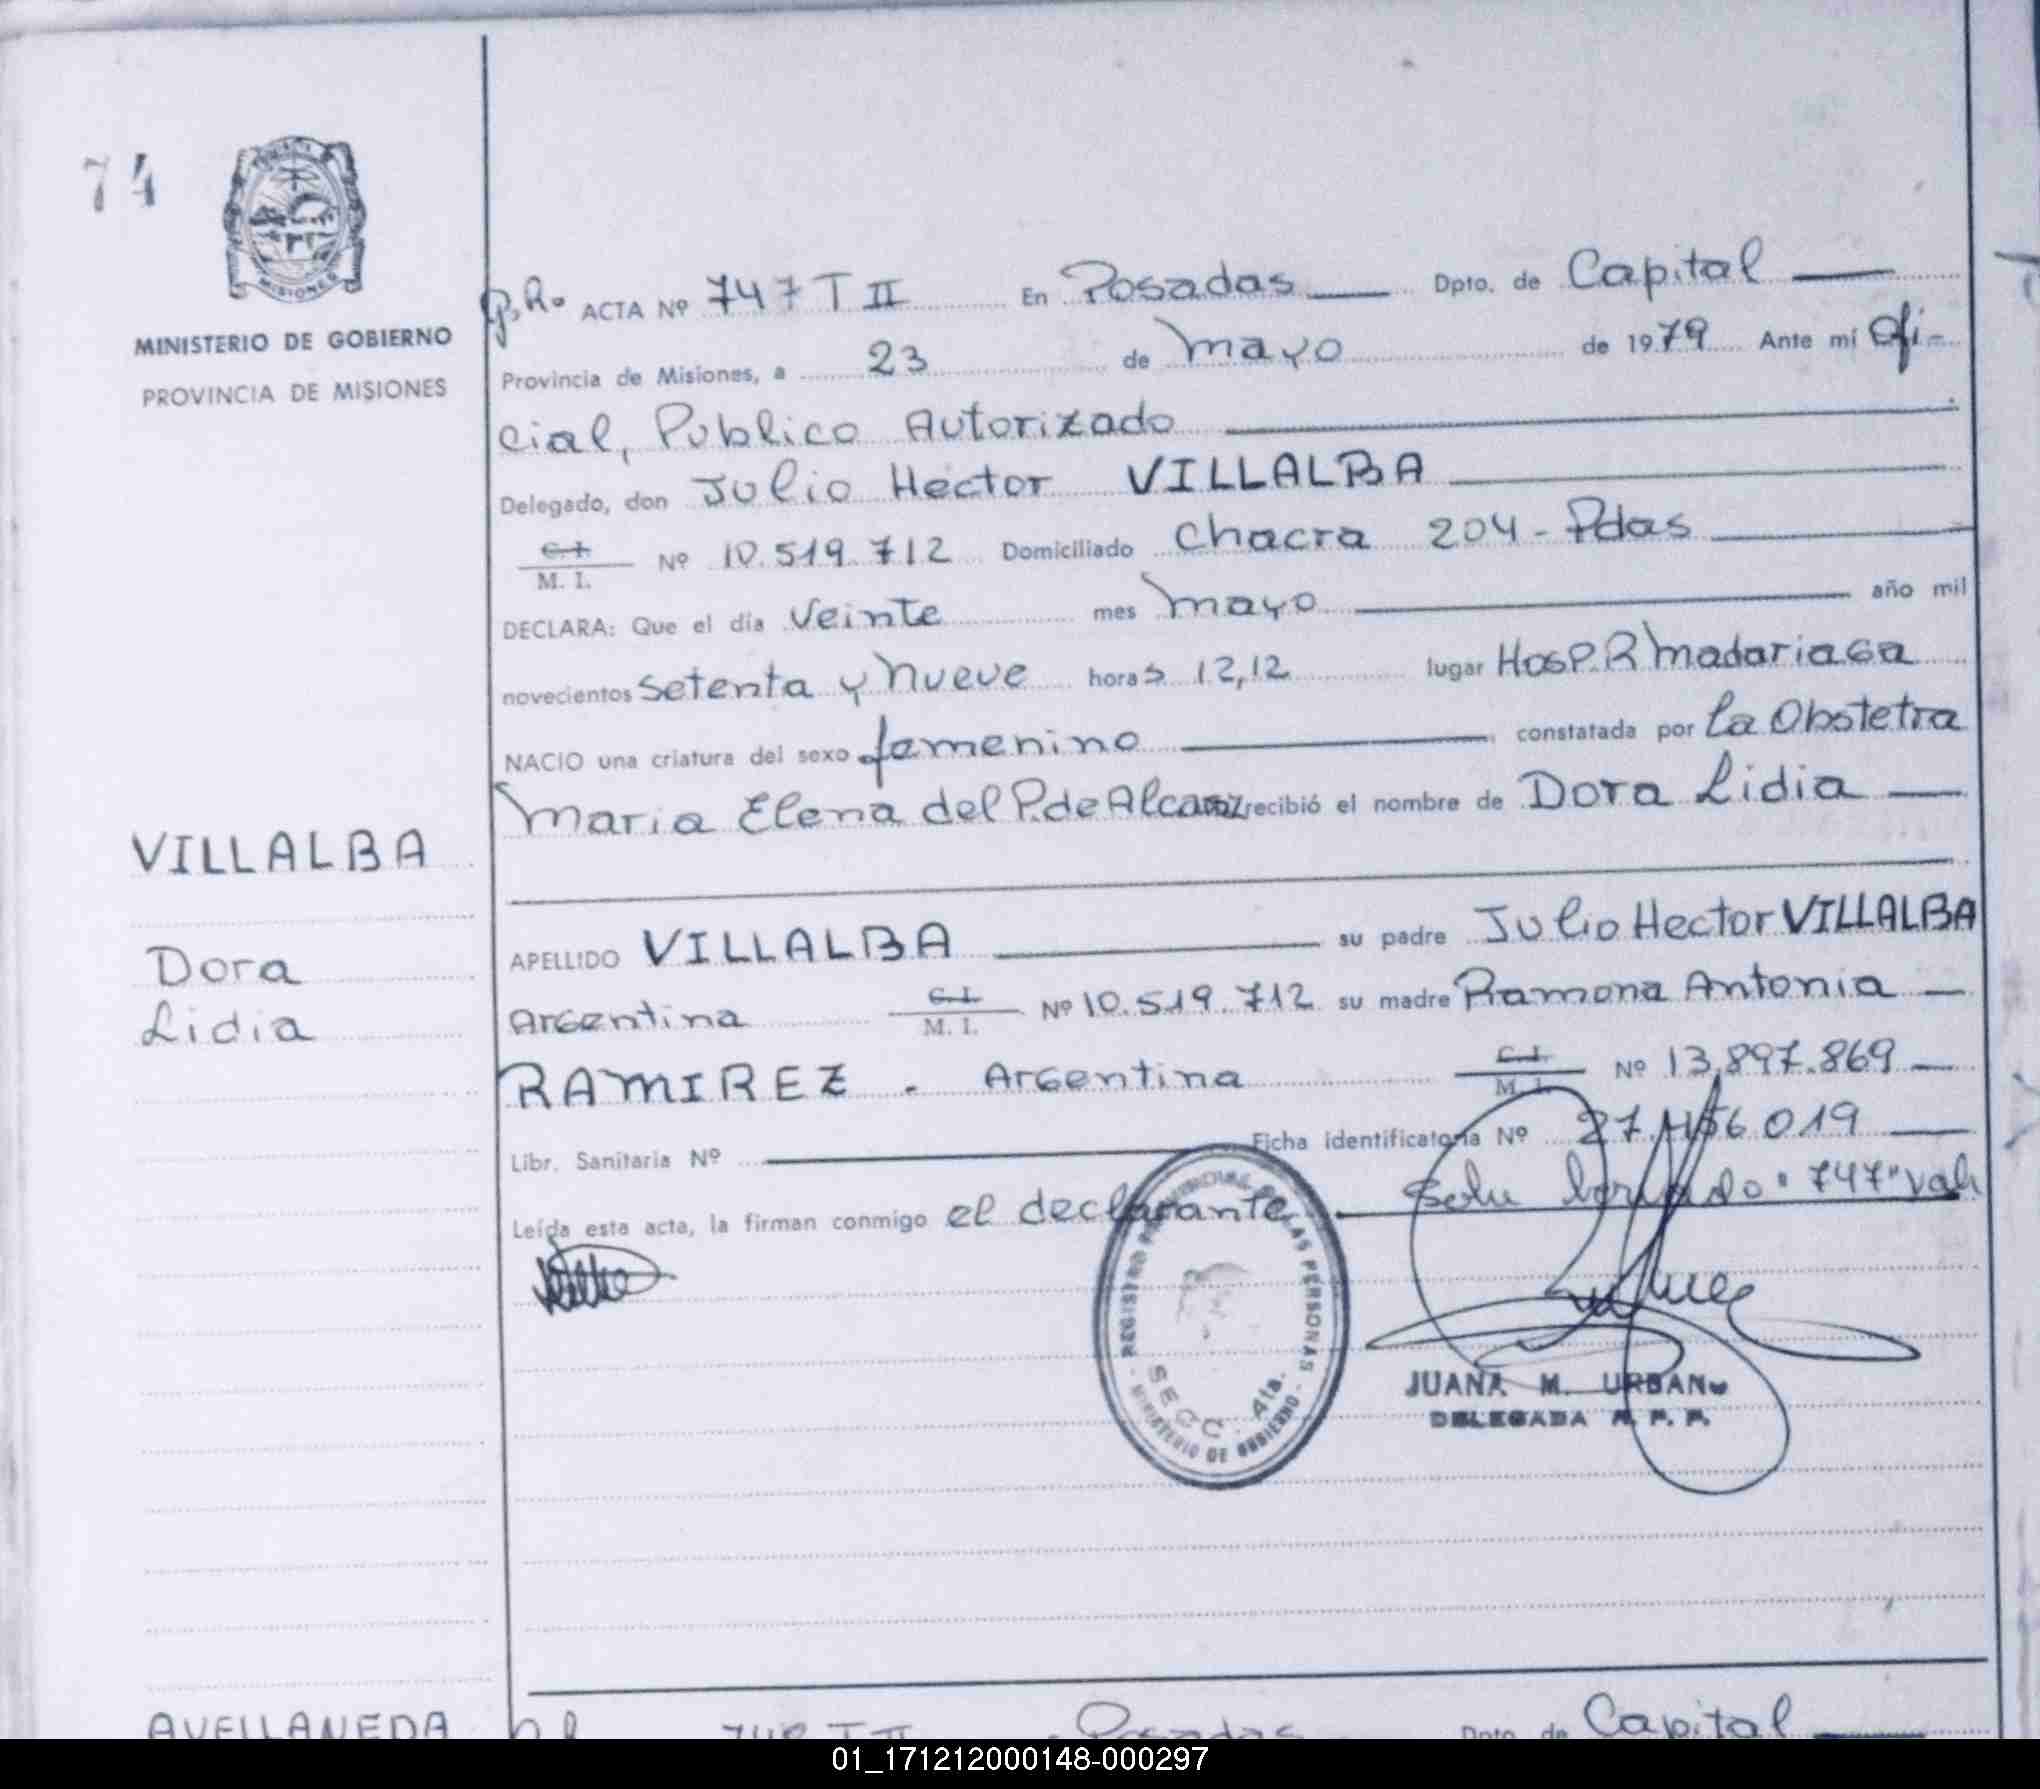 74
MINISTERIO DE GOBIERNO
PROVINCIA DE MISIONES
ACTA Nº 747 T II En Posadas Dpto. de Capital
Provincia de Misiones, a 23 de mayo de 1979 Ante mí Ofi-
cial, Publico Autorizado
Delegado, don Julio Hector VILLALBA
C. I.
M. I. Nº 10.519.712 Domiciliado Chacra 204 - Pdas
DECLARA: Que el día Veinte mes mayo año mil
novecientos setenta y nueve horas 12,12 lugar Hosp. R Madariaga
NACIO una criatura del sexo femenino constatada por la Obstetra
Maria Elena del P. de Alcaraz recibió el nombre de Dora Lidia
VILLALBA
Dora
Lidia
APELLIDO VILLALBA su padre Julio Hector VILLALBA
Argentina C. I.
M. I. Nº 10.519.712 su madre Ramona Antonia
RAMIREZ . Argentina C. I.
M. I. Nº 13,897.869
Libr. Sanitaria Nº Ficha identificatoria Nº 27.456.019
Leída esta acta, la firman conmigo el declarante "747" vale
REGISTRO PROVINCIAL DE LAS PERSONAS
SECC. 4ta.
MINISTERIO DE GOBIERNO
JUANA M. URBANO
DELEGADA R. P. P.
AVELLANEDA 748 T II Posadas Dpto. de Capital
01_171212000148-000297